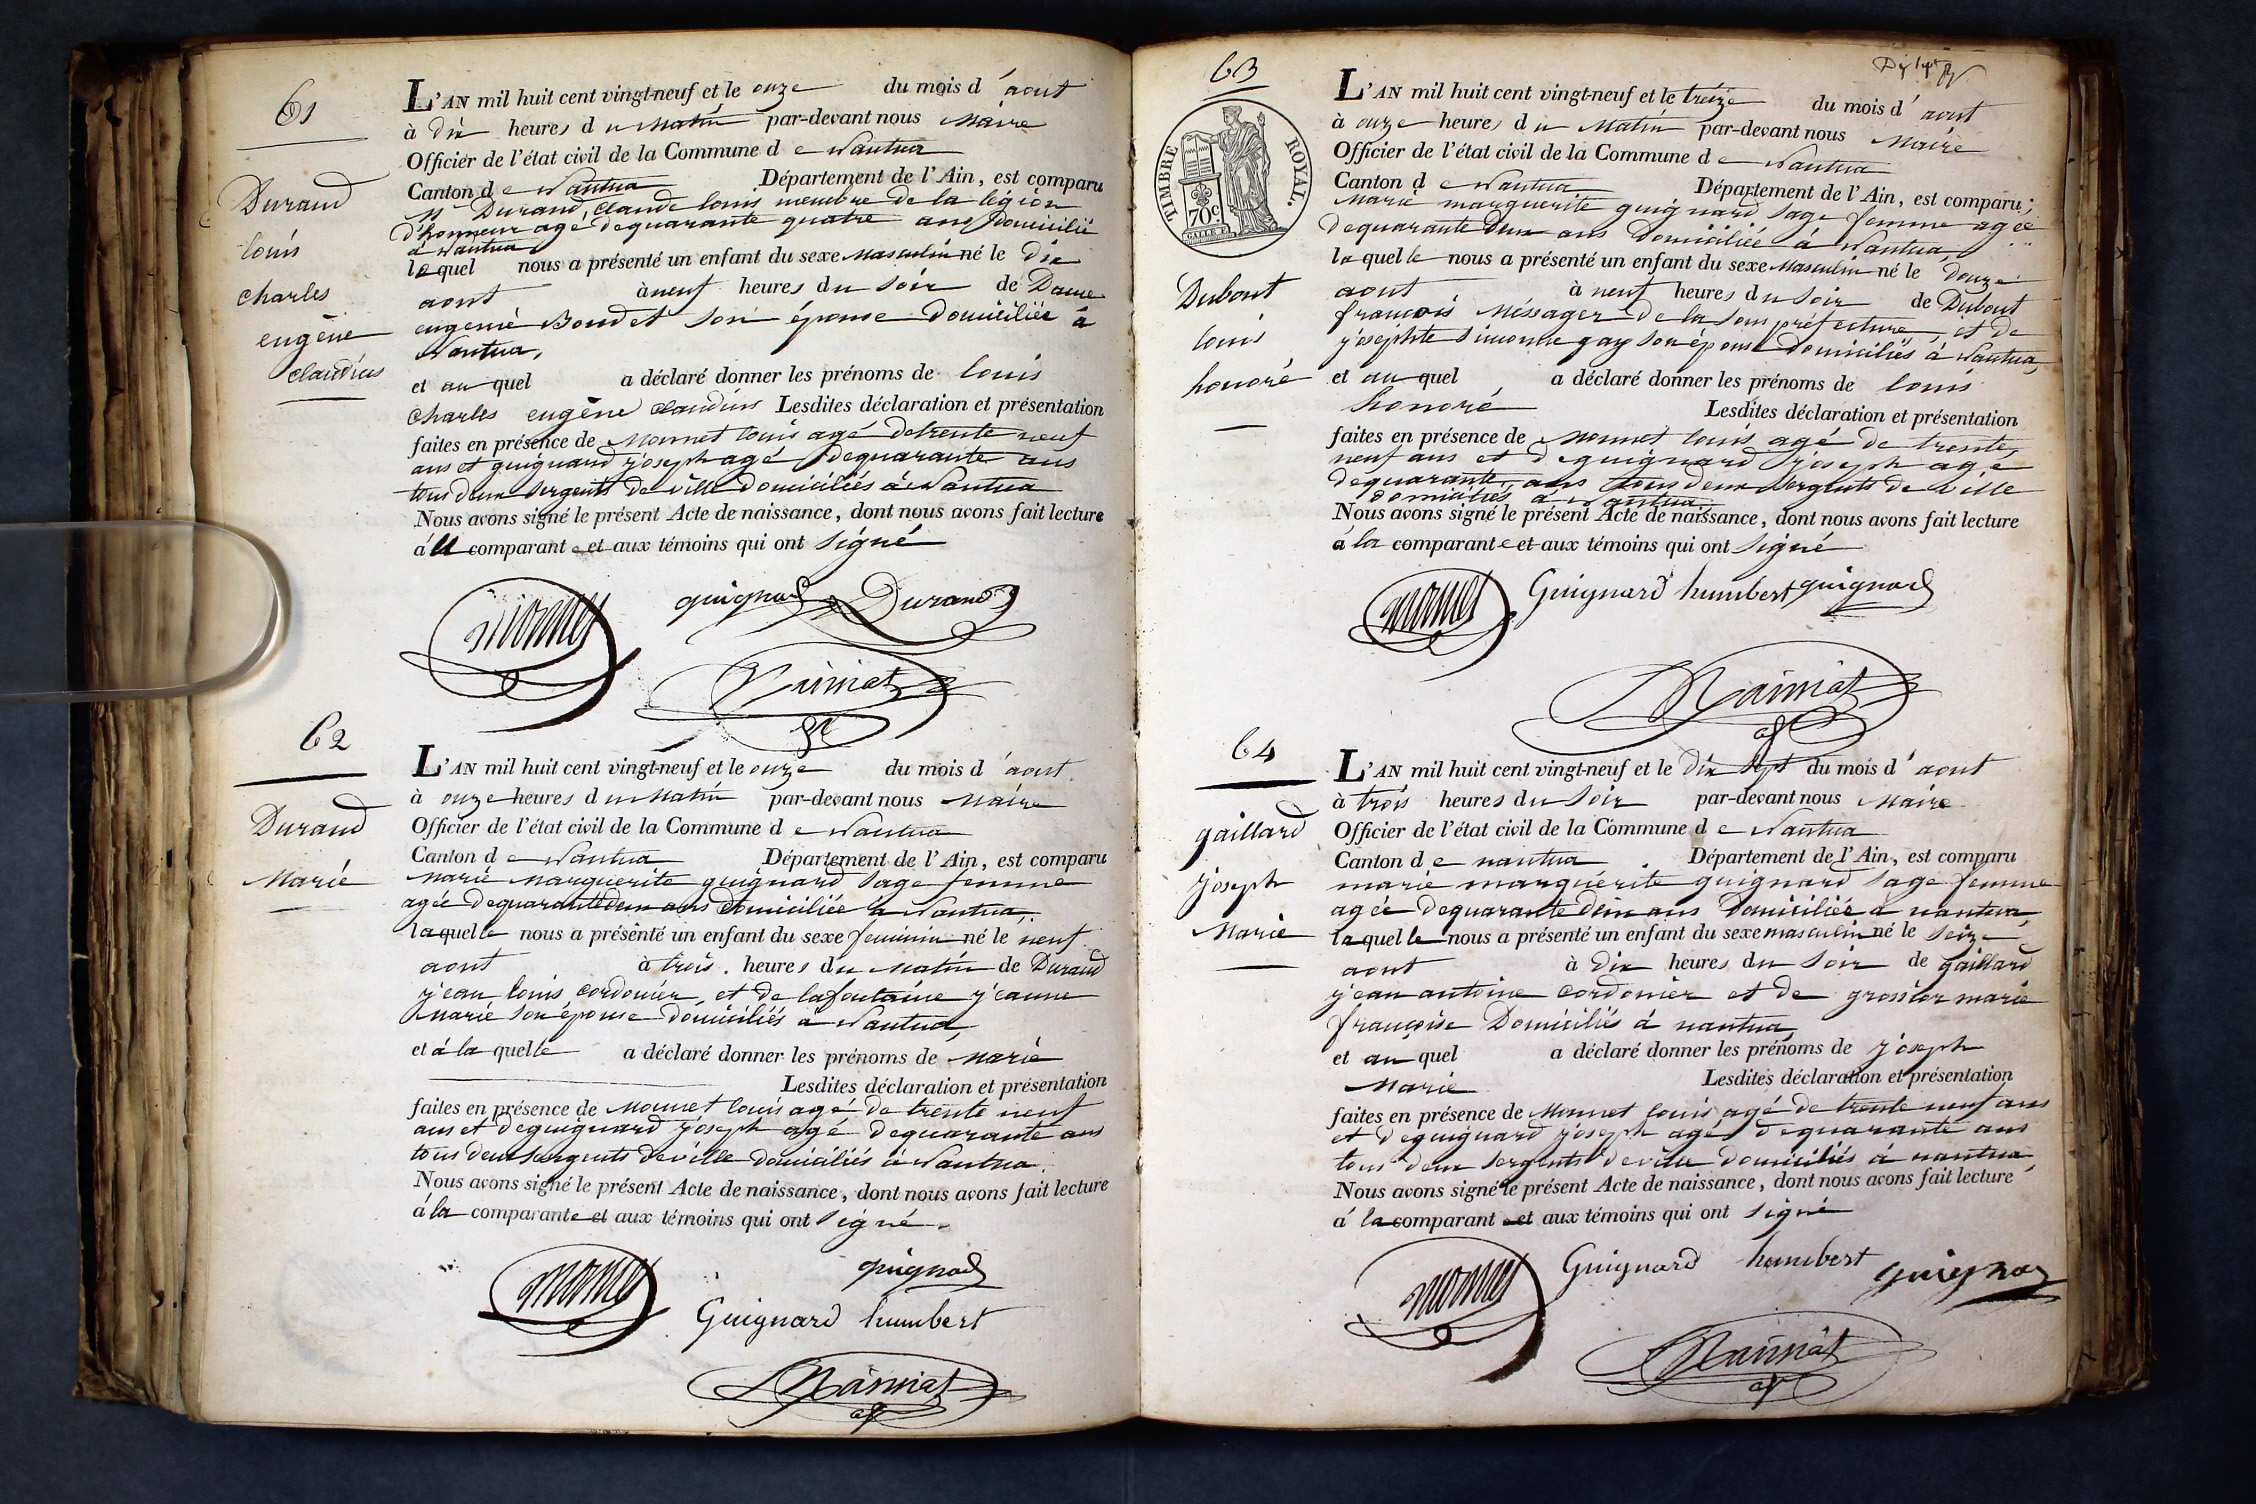 61
Durand
louis
charles
eugène
claudius
L'AN mil huit cent vingt-neuf et le onze du mois d'aout
à dix heures du matin par-devant nous Maire
Officier de l'état civil de la Commune de Nantua
Canton de Nantua Département de l'Ain, est comparu
Mr Durand, Claude louis membre de la légion
d'honneur agé de quarante quatre ans Domicilié
à Nantua
lequel nous a présenté un enfant du sexe Masculin né le dix
aout à neuf heures du soir de Dame
eugenie Boudet son épouse Domiciliée à
Nantua,
et auquel a déclaré donner les prénoms de louis
charles eugène claudius Lesdites déclaration et présentation
faites en présence de Monnet louis agé de trente neuf
ans et guignard joseph agé de quarante ans
tous deux sergents de ville domiciliés à Nantua
Nous avons signé le présent Acte de naissance, dont nous avons fait lecture
à comparant et aux témoins qui ont signé
Monnet guignard Durand
62
Durand
Marie
L'AN mil huit cent vingt-neuf et le onze du mois d'aout
à onze heures du Matin par-devant nous Maire
Officier de l'état civil de la Commune de Nantua
Canton de Nantua Département de l'Ain, est comparu
Marie Marguerite guignard Sage femme
agée de quarante deux ans domiciliée à Nantua,
laquelle nous a présenté un enfant du sexe feminin né le neuf
aout à trois heures du Matin de Durand
jean louis cordonier et de lafontaine jeanne
Marie son épouse Domiciliés à Nantua,
et à la quelle a déclaré donner les prénoms de Marie
Lesdites déclaration et présentation
faites en présence de Monnet louis agé de trente neuf
ans et de guignard joseph agé de quarante ans
tous deux sergents de ville domiciliés à Nantua.
Nous avons signé le présent Acte de naissance, dont nous avons fait lecture
à la comparante et aux témoins qui ont signé.
Monnet guignard
Guignard humbert
63
TIMBRE ROYAL.
70 c.
Dubout
louis
honoré
L'AN mil huit cent vingt-neuf et le treize du mois d'aout
à onze heures du Matin par-devant nous Maire
Officier de l'état civil de la Commune de Nantua
Canton de Nantua Département de l'Ain, est comparu;
Marie marguerite guignard Sage femme agée
de quarante deux ans Domiciliée à Nantua,
laquelle nous a présenté un enfant du sexe Masculin né le douze
aout à neuf heures du soir de Dubout
françois Messager de la sous préfecture, et de
josephte simonne gay son épouse domiciliés à Nantua,
et auquel a déclaré donner les prénoms de louis
honoré Lesdites déclaration et présentation
faites en présence de Monnet louis agé de trente
neuf ans et de guignard joseph agé
de quarante ans tous deux sergents de ville
domiciliés à Nantua
Nous avons signé le présent Acte de naissance, dont nous avons fait lecture
à la comparante et aux témoins qui ont signé
Monnet Guignard humbert guignard
64
gaillard
joseph
Marie
L'AN mil huit cent vingt-neuf et le dix sept du mois d'aout
à trois heures du soir par-devant nous Maire
Officier de l'état civil de la Commune de Nantua
Canton de nantua Département de l'Ain, est comparu
marie marguerite guignard Sage femme
agée de quarante deux ans Domiciliée à nantua
laquelle nous a présenté un enfant du sexe masculin né le seize
aout à dix heures du soir de gaillard
jean antoine cordonier et de marie
françoise Domiciliés à nantua,
et auquel a déclaré donner les prénoms de joseph
Marie Lesdites déclaration et présentation
faites en présence de Monnet louis agé de trente neuf ans
et de guignard joseph agé de quarante ans
tous deux sergents de ville domiciliés à nantua
Nous avons signé le présent Acte de naissance, dont nous avons fait lecture
à la comparant et aux témoins qui ont signé
Monnet Guignard humbert guignard